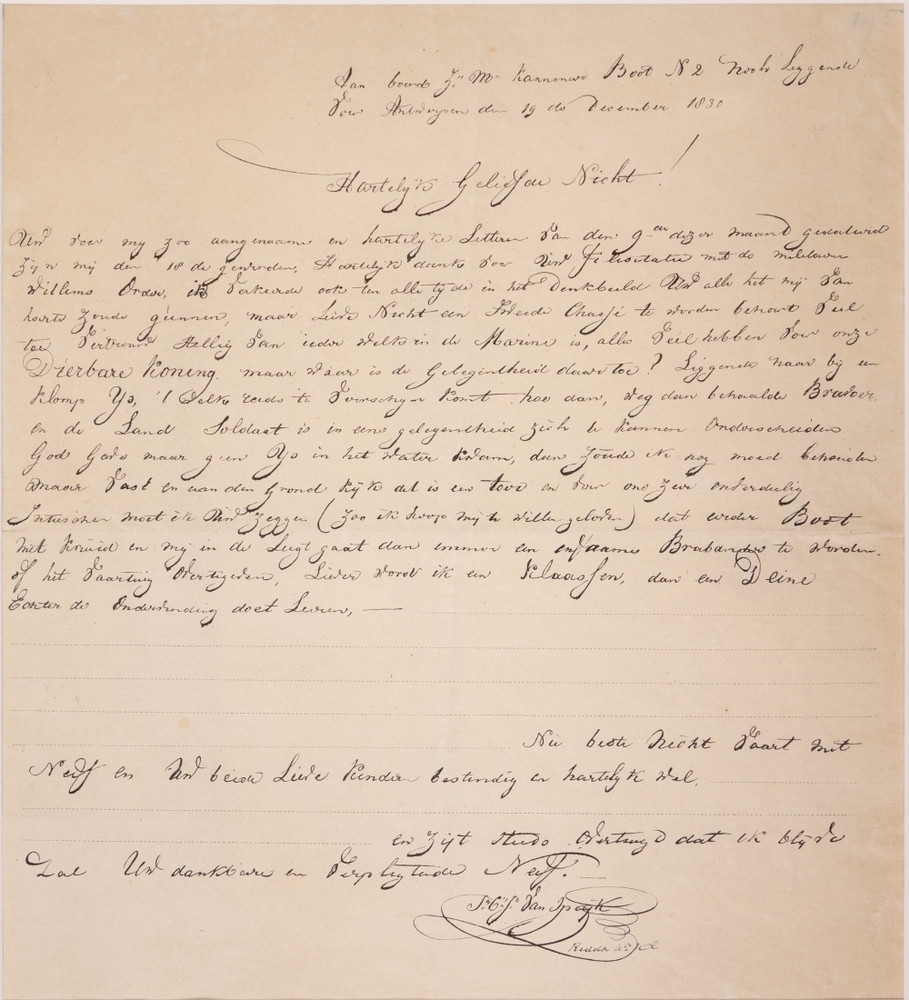 Aan boord Zr Ms Kannonneer Boot N 2 Liggende
Voor Antwerpen den 19 de December 1830
Hartelijk Geliefde Nicht!
Uw voor mij zoo aangenaame en hartelijke Letteren Van den 9en dezer maand gedateerd
Zijn mij den 18 de geworden, Hartelijk dank voor Uw felicitatie met de militaire
Willems Order, ik verkeerde ook ten alle tijde in het Denkbeeld Uw alle het mij Van
harte zoude gunnen, maar Lieve Nicht een Tweede Chassé te worden behoort Veel
toe, Vertrouw Stellig Van ieder welk in de Marine is, alles Veil hebben Voor onze
Dierbare Koning. maar waar is de Gelegentheid daar toe? Liggende naar bij een
klomp Ys, 't Welk reeds te Voorschijn komt hoe dan, weg dan behaalde Bravoer,
en de Land Soldaat is in eene gelegentheid zich te kunnen Onderscheiden
God Gave maar geen Ys in het water kwam, dan zoude ik nog moed behouden
maar Vast en aan den Grond Kijk dat is een toer en Voor ons Zeer onderdeelig
Intusschen moet ik Uw Zeggen (Zoo ik hoop mij te willen gelooven) dat eerder Boot
met Kruid en mij in de Lugt gaat dan immer een infaame Brabander te worden.
of het Vaartuig Overtegeven, Liever wordt ik een Klaassen, dan een Deine
Echter de Ondervinding doet Leeren, —
Nu beste Nicht Vaart met
Neeff en Uw beide Lieve Kinderen bestendig en hartelijk Wel.
en Zijt steeds Overtuygd dat ik blijve
Zal Uw dankbare en Verpligtende Neeff.
J.C.J. Van Speijk
Ridder